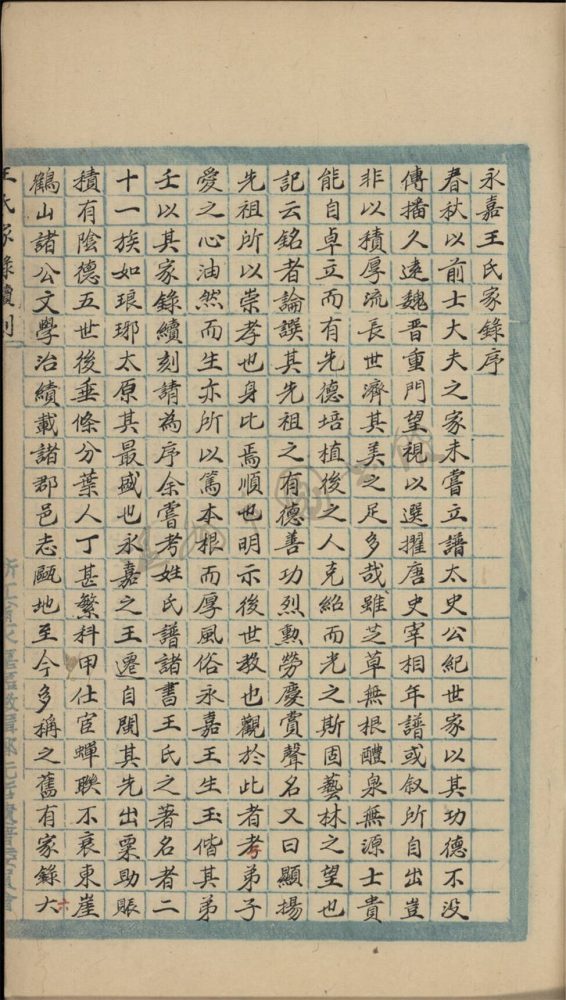 永嘉王氏家錄序
春秋以前士大夫之家未嘗立譜太史公紀世家以其功德不没
傳播久遠魏晉重門望視以選擢唐史宰相年譜或叙所自出豈
非以積厚流長世濟其美之足多哉雖芝草無根醴泉無源士貴
能自卓立而有先德培植後之人克紹而光之斯固藝林之望也
記云銘者論譔其先祖之有德善功烈勳勞慶賞聲名又曰顯揚
先祖所以崇孝也身比焉順也明示後世教也觀於此者孝弟子
愛之心油然而生亦所以篤本根而厚風俗永嘉王生玉偕其弟
壬以其家錄續刻請為序余嘗考姓氏譜諸書王氏之著名者二
十一族如琅琊太原其最盛也永嘉之王遷自閩其先出粟助賑
積有陰德五世後垂條分葉人丁甚繁科甲仕宦蟬聯不衰東崖
鶴山諸公文學治績載諸郡邑志甌地至今多稱之舊有家錄六
王氏家錄續刊